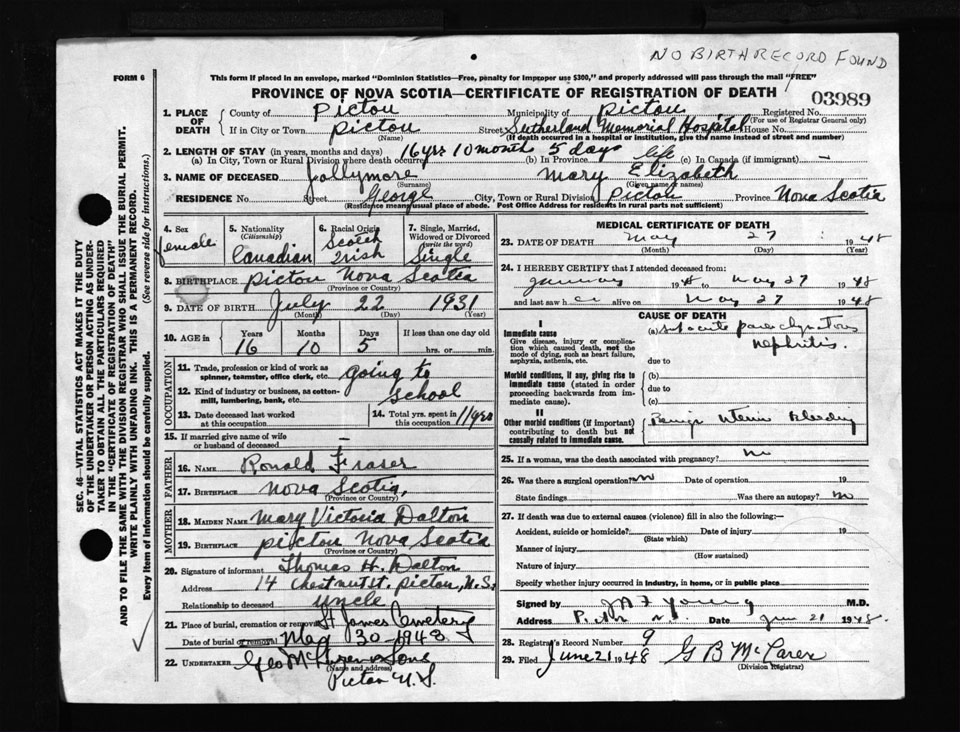 NO BIRTH RECORD FOUND
FORM 6
This form if placed in an envelope, marked "Dominion Statistics—Free, penalty for improper use $300," and properly addressed will pass through the mail "FREE"
PROVINCE OF NOVA SCOTIA—CERTIFICATE OF REGISTRATION OF DEATH
03989
1. PLACE OF DEATH County of Pictou Municipality of Pictou Registered No.
(For use of Registrar General only)
If in City or Town Pictou Street Sutherland Memorial Hospital House No.
(Name) (If death occurred in a hospital or institution, give the name instead of street and number)
2. LENGTH OF STAY (in years, months and days)
(a) In City, Town or Rural Division where death occurred 16 yrs 10 month 5 days (b) In Province life (c) In Canada (if immigrant) —
3. NAME OF DECEASED Jollymore Mary Elizabeth
(Surname) (Given name or names)
RESIDENCE No. Street George City, Town or Rural Division Pictou Province Nova Scotia
(Residence means usual place of abode. Post Office Address for residents in rural parts not sufficient)
4. Sex female
5. Nationality (Citizenship) Canadian
6. Racial Origin Scotch Irish
7. Single, Married, Widowed or Divorced (write the word) Single
8. BIRTHPLACE Pictou Nova Scotia
(Province or Country)
9. DATE OF BIRTH July 22 1931
(Month) (Day) (Year)
10. AGE in Years 16 Months 10 Days 5 If less than one day old hrs. or min.
OCCUPATION
11. Trade, profession or kind of work as spinner, teamster, office clerk, etc. going to
12. Kind of industry or business, as cotton-mill, lumbering, bank, etc. School
13. Date deceased last worked at this occupation
14. Total yrs. spent in this occupation 11 yrs
15. If married give name of wife or husband of deceased —
FATHER
16. NAME Ronald Fraser
17. BIRTHPLACE Nova Scotia,
(Province or Country)
MOTHER
18. MAIDEN NAME Mary Victoria Dalton
19. BIRTHPLACE Pictou Nova Scotia
(Province or Country)
20. Signature of informant Thomas H. Dalton
Address 14 Chestnut St. Pictou, N.S.
Relationship to deceased Uncle
21. Place of burial, cremation or removal St James Cemetery
Date of burial or removal May 30-1948
22. UNDERTAKER Geo McLaren & Sons
(Name and address)
Pictou N.S.
MEDICAL CERTIFICATE OF DEATH
23. DATE OF DEATH May 27 1948
(Month) (Day) (Year)
24. I HEREBY CERTIFY that I attended deceased from:
January 1948 to May 27 1948
and last saw her alive on May 27 1948
CAUSE OF DEATH
I
Immediate cause
Give disease, injury or complication which caused death, not the mode of dying, such as heart failure, asphyxia, asthenia, etc.
(a) Subacute parenchymatous nephritis.
due to
Morbid conditions, if any, giving rise to immediate cause (stated in order proceeding backwards from immediate cause).
(b)
due to
(c)
II
Other morbid conditions (if important) contributing to death but not causally related to immediate cause.
Benign Uterine Bleeding
25. If a woman, was the death associated with pregnancy? no
26. Was there a surgical operation? no Date of operation 19
State findings Was there an autopsy? no
27. If death was due to external causes (violence) fill in also the following:—
Accident, suicide or homicide? Date of injury 19
(State which)
Manner of injury
(How sustained)
Nature of injury
Specify whether injury occurred in industry, in home, or in public place
Signed by Young M.D.
Address Pictou N.S. Date June 21 1948.
28. Registrar's Record Number 9
29. Filed June 21 1948 G B McLaren
(Division Registrar)
SEC. 46—VITAL STATISTICS ACT MAKES IT THE DUTY
OF THE UNDERTAKER OR PERSON ACTING AS UNDER-
TAKER TO OBTAIN ALL THE PARTICULARS REQUIRED
IN THE "CERTIFICATE OF REGISTRATION OF DEATH"
AND TO FILE THE SAME WITH THE DIVISION REGISTRAR WHO SHALL ISSUE THE BURIAL PERMIT.
WRITE PLAINLY WITH UNFADING INK. THIS IS A PERMANENT RECORD.
Every item of information should be carefully supplied. (See reverse side for instructions.)